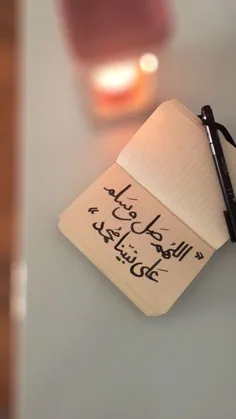 «اللهم صَل وسَلم
عَلى نبينا محمد»